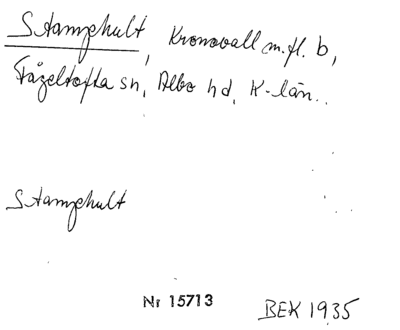 Stamphult, Kronovall m.fl. b,
Fågeltofta sn, Albo hd, K-län.
Stamphult
Nr 15713
BEK 1935